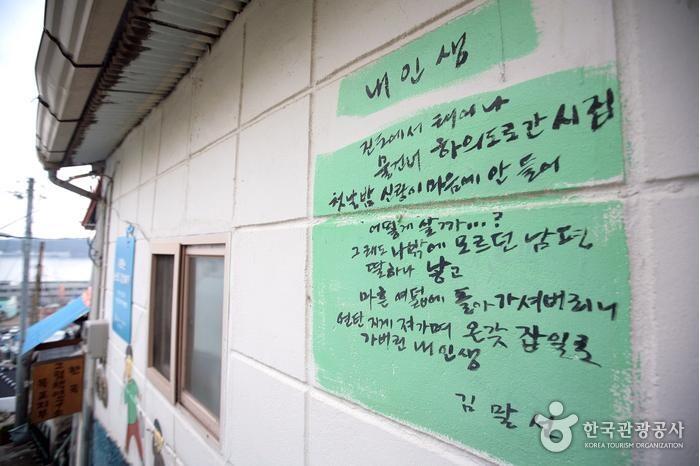 내 인생
진도에서 태어나
물건너 하의도로 간 시집
첫날밤 신랑이 마음에 안 들어
어떻게 살까...?
그래도 나밖에 모르던 남편
딸하나 낳고
마흔 여덟에 돌아가셔버리니
연탄 지게 져가며 온갖 잡일로
가버린 내 인생
김말심
한국
목포지부
한국관광공사
KOREA TOURISM ORGANIZATION